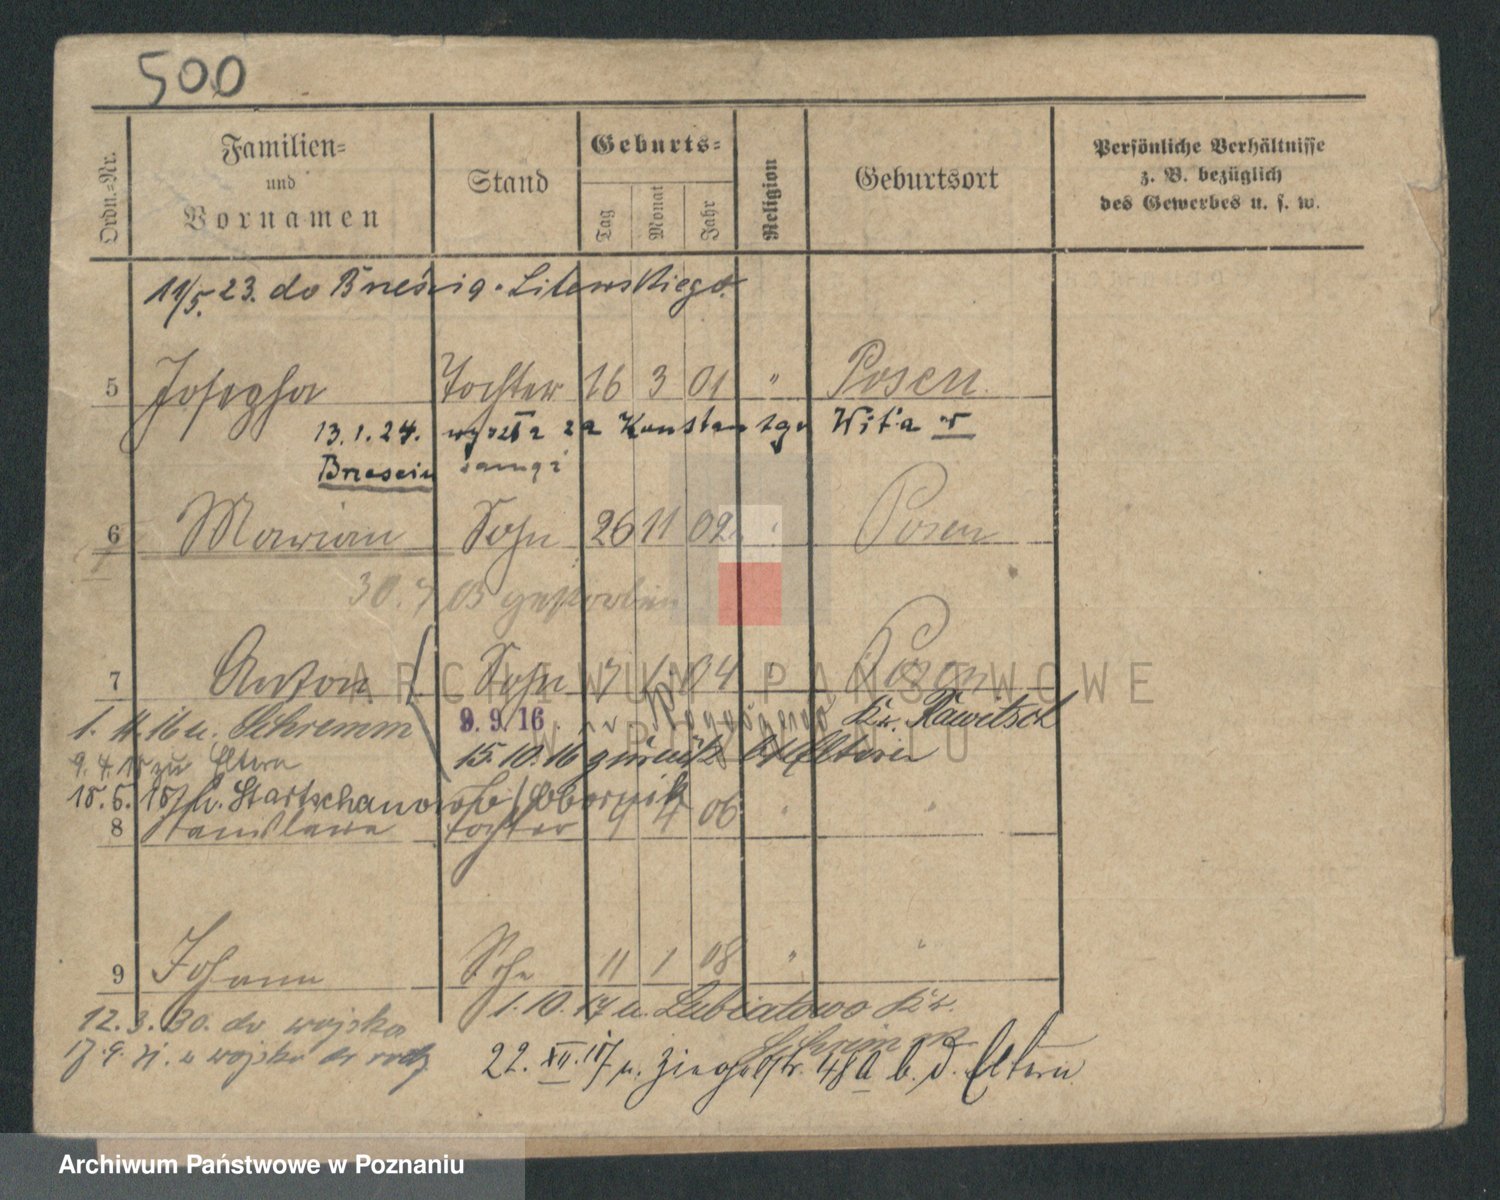 500
Ordn.=Nr.
Familien=
und
Vornamen
Stand
Geburts=
Tag
Monat
Jahr
Religion
Geburtsort
Persönliche Verhältnisse
z. B. bezüglich
des Gewerbes u. s. w.
11/5. 23. do Brześcia-Litewskiego.
5 Josepha Tochter 16 3 01 " Posen
13.1.24. wyszła za Konstantego Wit'a w
Brzesciu
6 Marian Sohn 26 11 02 " Posen
30. 7 03 gestorben
7 Anton Sohn 04 " Posen
1. 4. 16 u. Schremm 9. 9. 16 Kr. Rawitsch
9. 4. zu Eltern 15. 10. 16 zurück Eltern
18. 5. 18 Startschanowo b/ Obornik
8 Stanislawa Tochter 9 4 06 " "
9 Johann Sohn 11 1 08 " "
12. 3. 30. do wojska 1. 10. 17 u. Lubiatowo Kr.
Schrimm
17. 9. 31. z wojska 22. XII. 17 u. Ziegelstr. 48a b. d. Eltern
ARCHIWUM PAŃSTWOWE
W POZNANIU
Archiwum Państwowe w Poznaniu